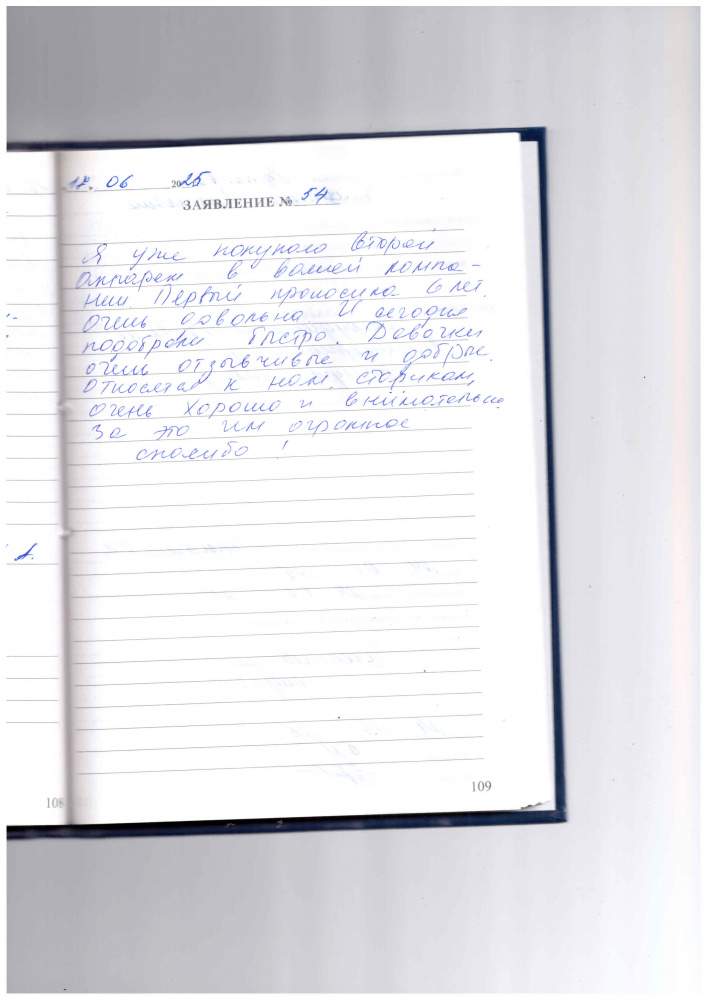 17. 06 2025
ЗАЯВЛЕНИЕ № 54
Я уже покупаю второй
аппарат в вашей компа-
нии. Первый проносила 6 лет.
Очень довольна. И сегодня
подобрали быстро. Девочки
очень отзывчивые и добрые.
Относятся к нам, старикам,
очень хорошо и внимательно
За это им огромное
спасибо !
А.
108
109